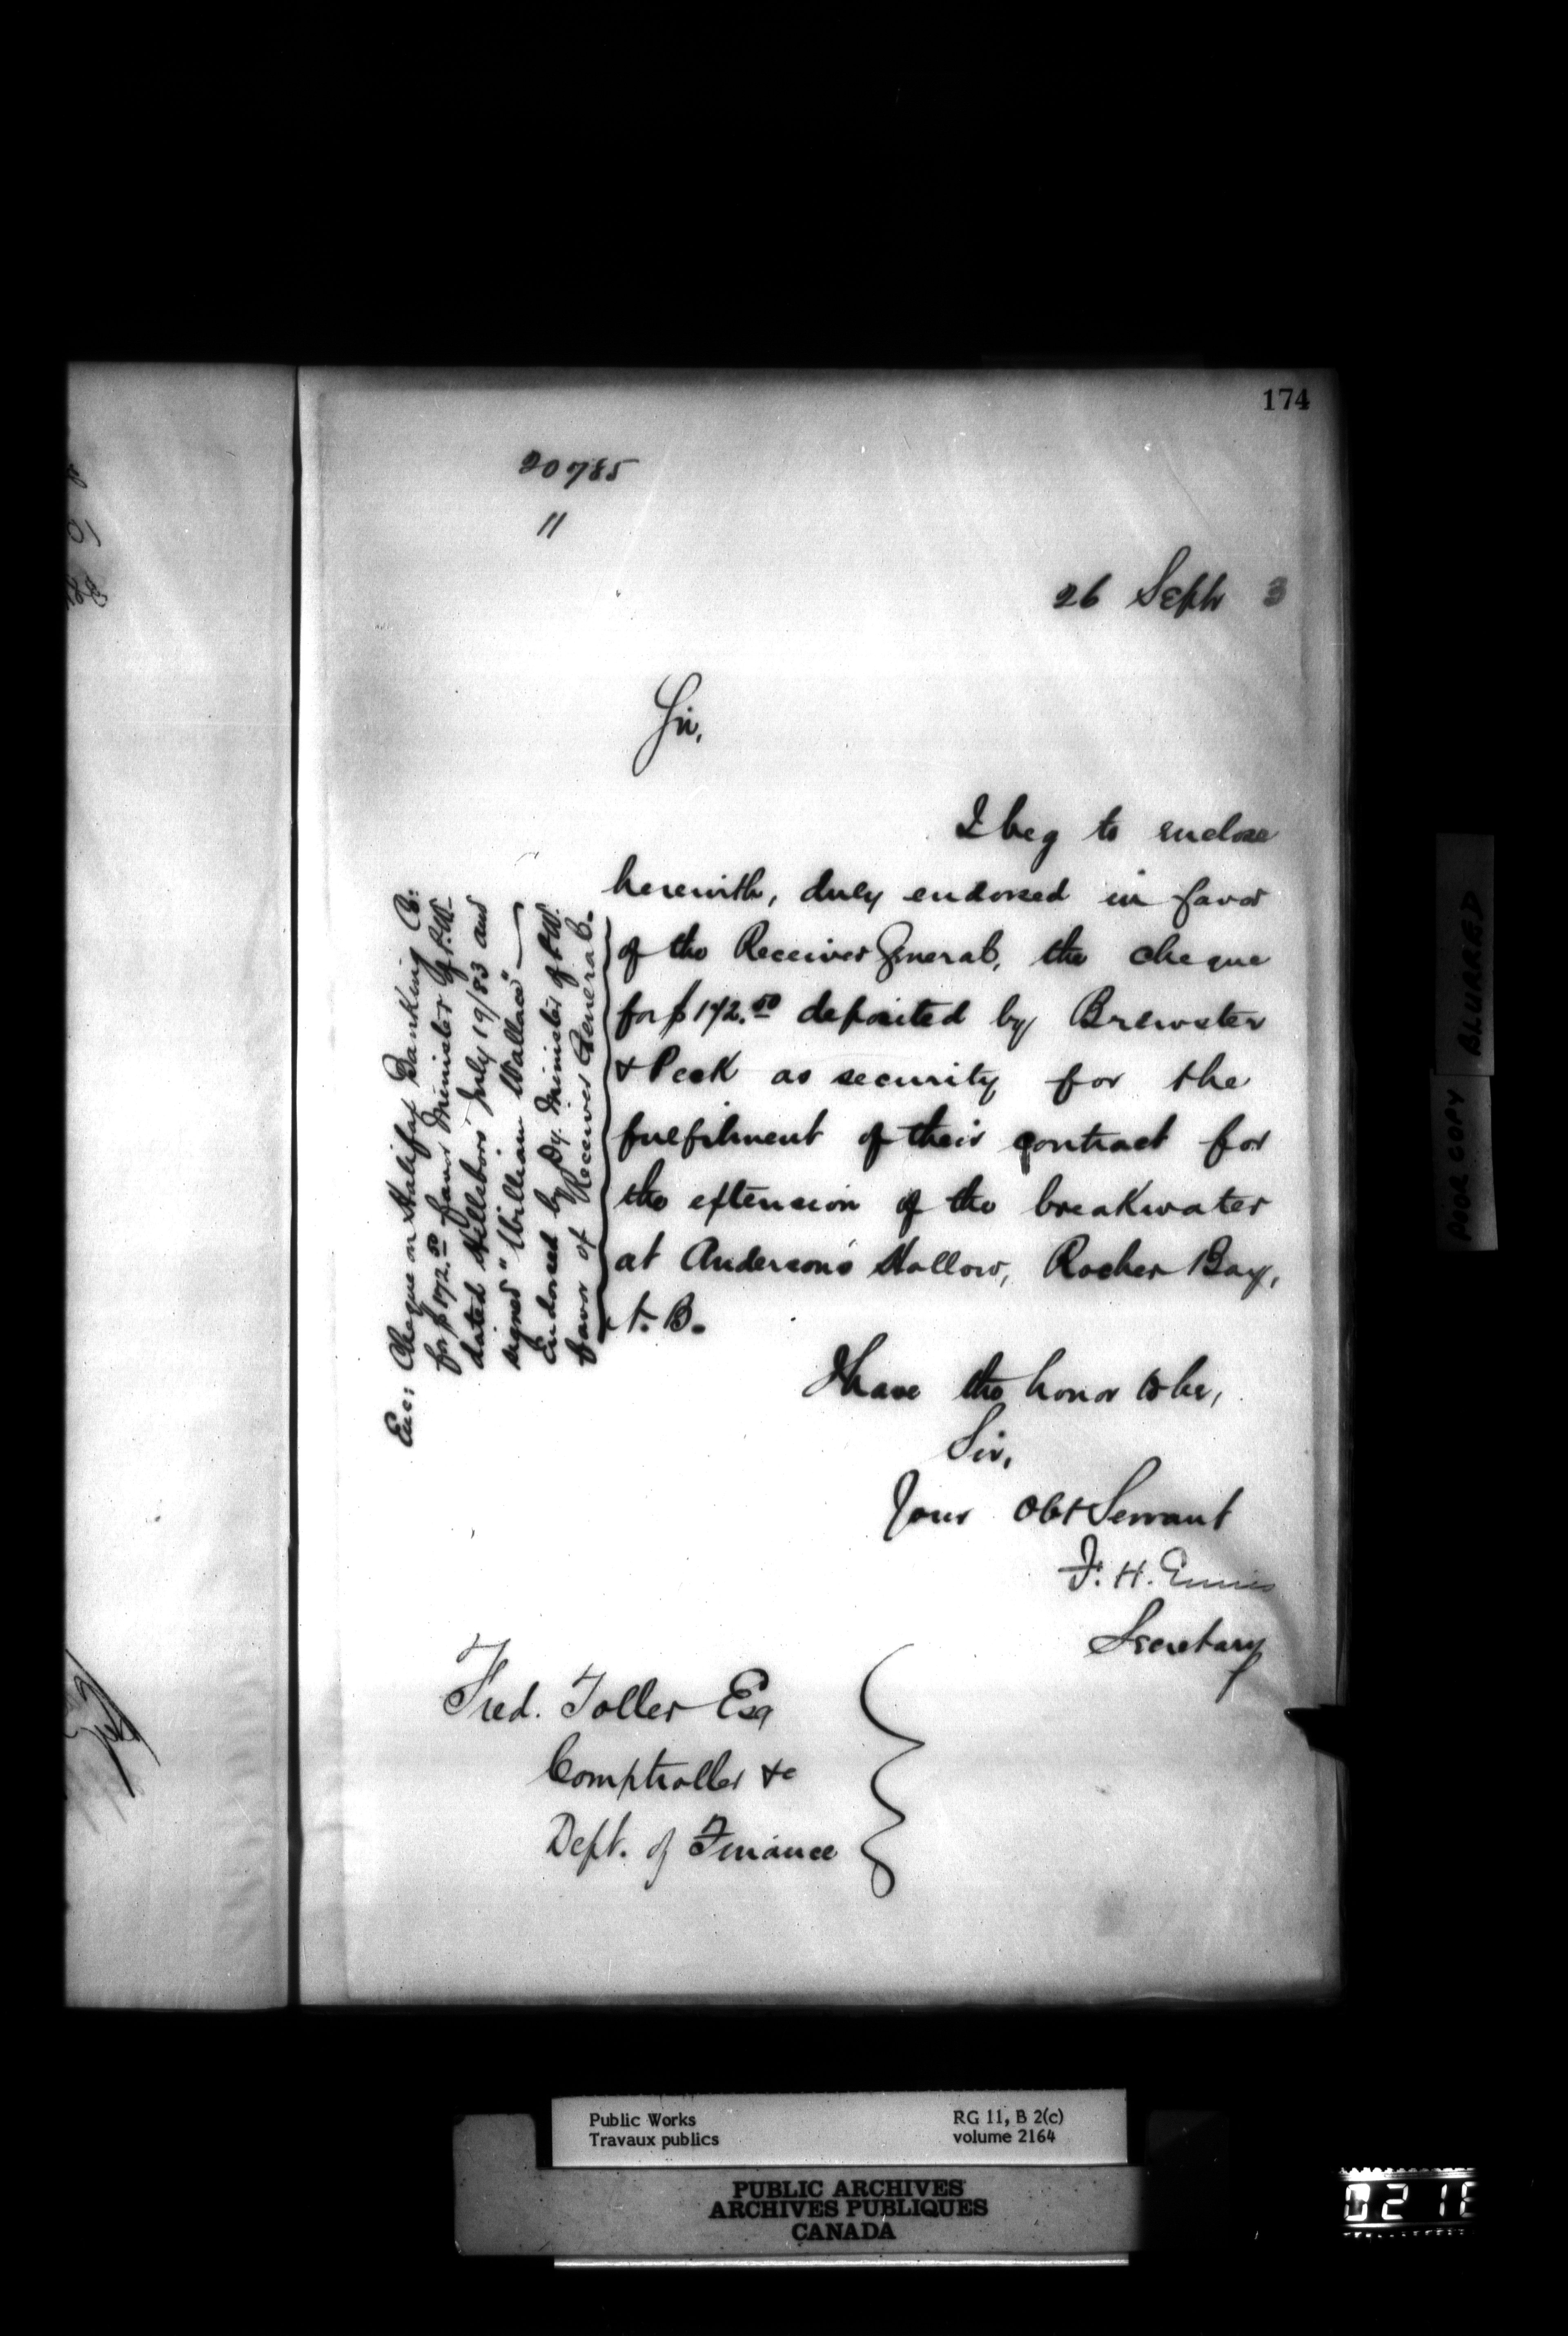 174
20785
11
26 Septr 3
Sir,
I beg to enclose
herewith, duly endorsed in favor
of the Receiver General, the cheque
for $172.50 deposited by Brewster
& Peck as security for the
fulfilment of their contract for
the extension of the breakwater
at Anderson's Hollow, Rocher Bay,
N. B.
Enc: Cheque on Halifax Banking Co:
for $172.50 favor Minister of P.W.
dated Hillsboro July 19/83 and
signed "William Wallace"
Endorsed by Dy. Minister of P.W.
favor of Receiver General.
I have the honor to be,
Sir,
Your Obt Servant
F. H. Ennis
Secretary
Fred. Toller Esq
Comptroller &c
Dept. of Finance
POOR COPY
BLURRED
Public Works
Travaux publics
RG 11, B 2(c)
volume 2164
PUBLIC ARCHIVES
ARCHIVES PUBLIQUES
CANADA